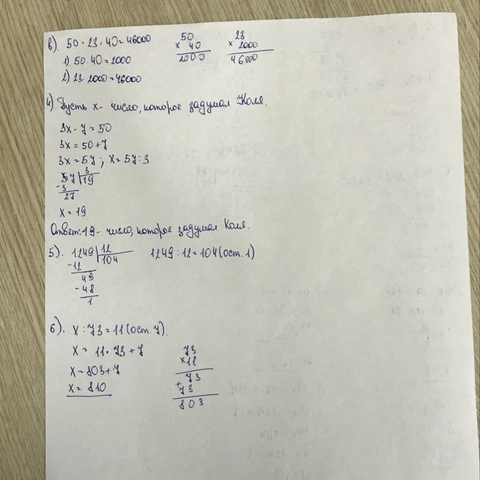 в). 50 · 23 · 40 = 46000
1) 50 · 40 = 2000
2) 23 · 2000 = 46000
50
× 40
2000
23
× 2000
46000
4) Пусть х - число, которое задумал Коля.
3х - 7 = 50
3х = 50 + 7
3х = 57 ; х = 57 : 3
57 | 3
- 3 | 19
27
х = 19
Ответ: 19 - число, которое задумал Коля.
5). 1249 | 12
- 12 | 104
49
- 48
1
1249 : 12 = 104 (ост. 1)
6). х : 73 = 11 (ост. 7).
х = 11 · 73 + 7
х = 803 + 7
х = 810
73
× 11
73
+ 73
803